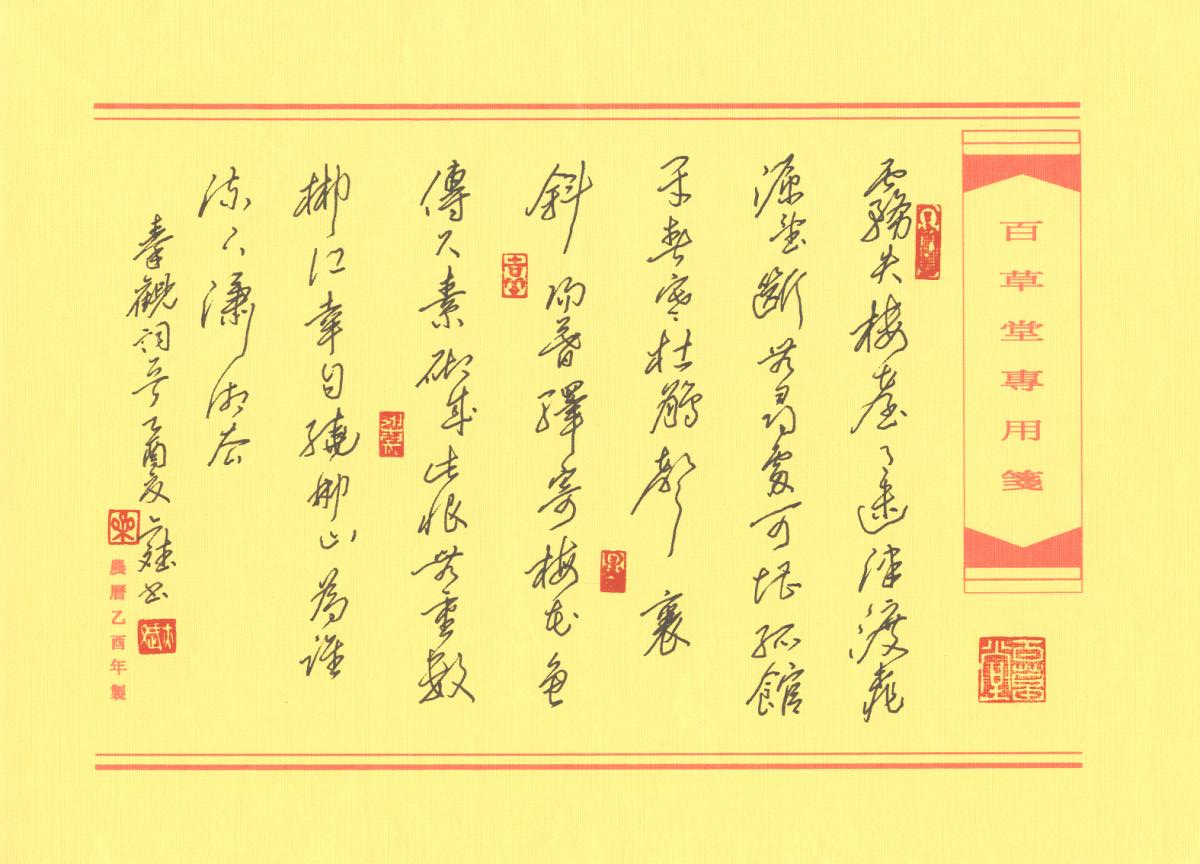 百草堂專用箋
百草堂
霧失樓臺月迷津渡桃
源望斷無尋處可堪孤館
閉春寒杜鵑聲裏
斜陽暮驛寄梅花魚
傳尺素砌成此恨無重數
郴江幸自繞郴山為誰
流下瀟湘去
秦觀詞乙酉夏書
農曆乙酉年製